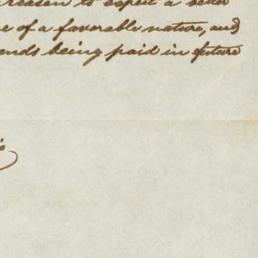 reason to expect a better
e of a favorable nature, and
ends being paid in future